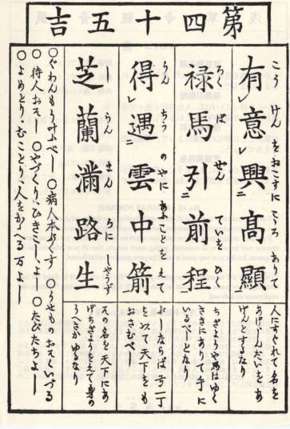 第四十五吉
有意興高顯
こうけんをおこすにこゝろありて
人にすぐれて名を
あげしんだいをあ
げんとするなり
禄馬引前程
ろくばせんていをひく
ちぎようや馬はゆく
さきにありて手に
いるべしとなり
得遇雲中箭
うんちうのやにあふことをえて
ならば弓一丁
を以て天下をも
おさむべし
芝蘭滿路生
しらんまんろにしやうず
名を天下にあ
げちぎようをえて身の
うへさかゆるなり
〇ぐわんもうかなふべし 〇病人本ぷくす 〇うせものおそくいづる
〇待人おそし 〇やづくりひきこしよし 〇たびだちよし
〇よめとりむことり人をかゝへる万よし